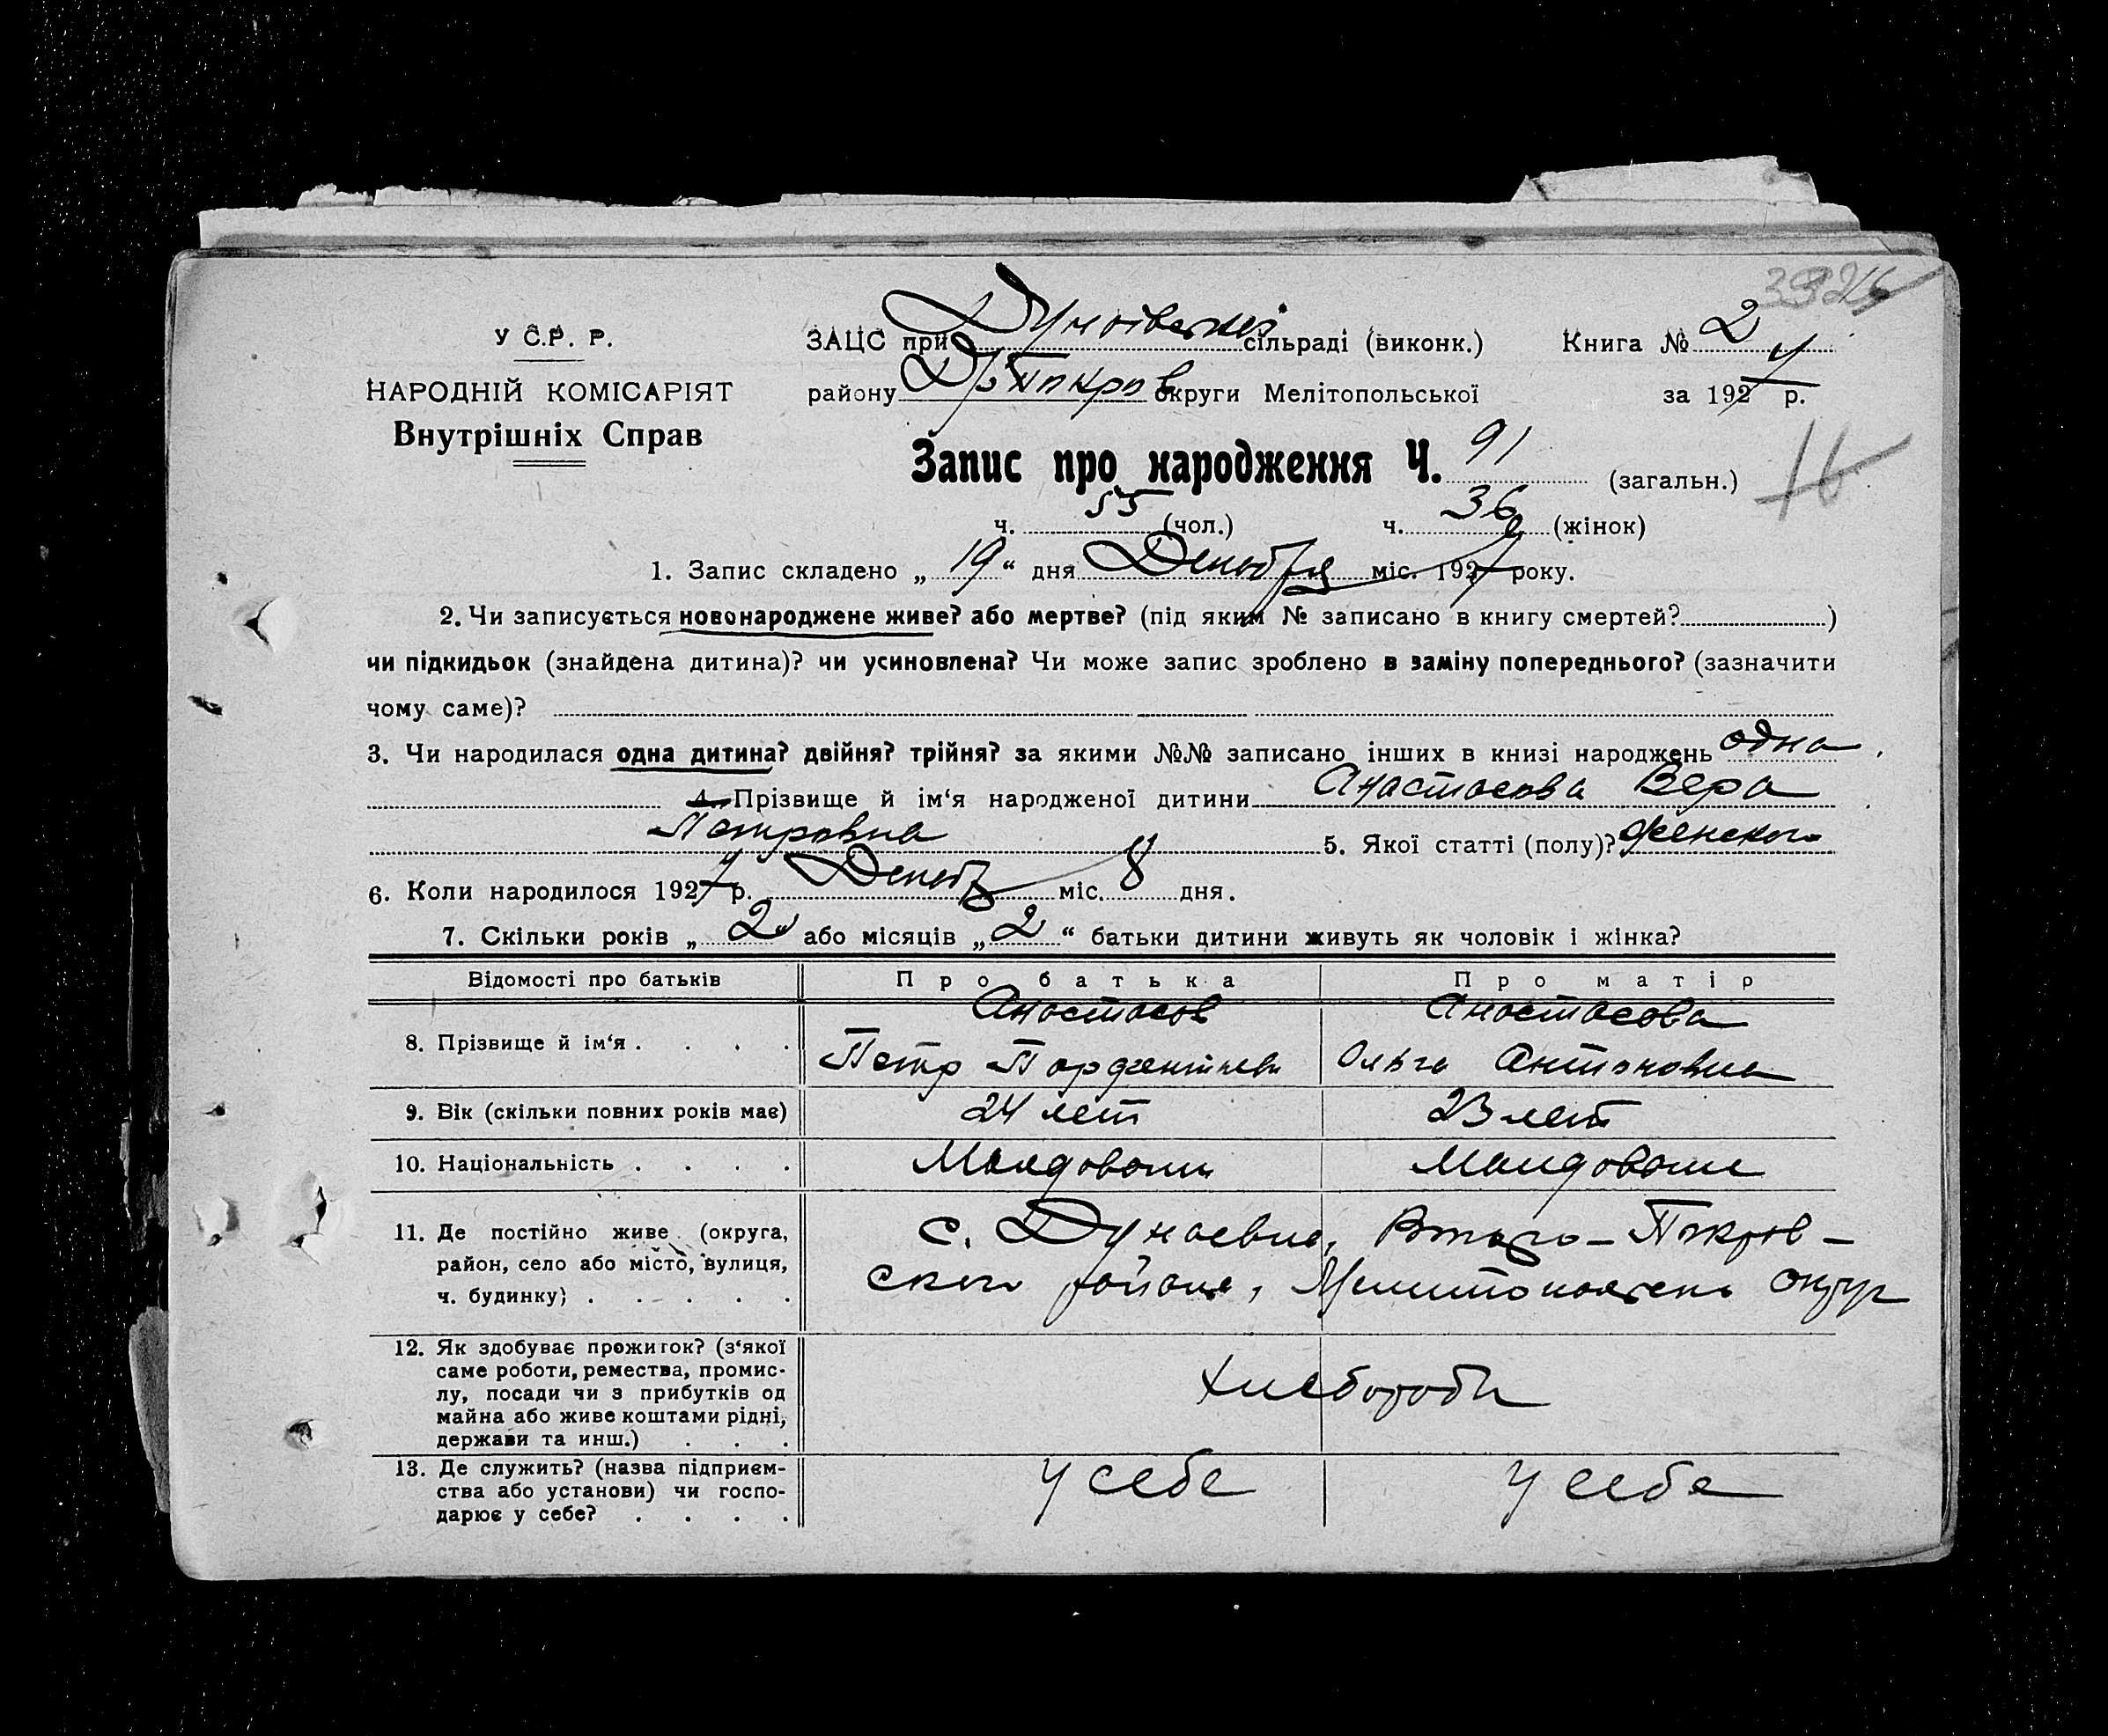 У С.Р. Р.
НАРОДНІЙ КОМІСАРІЯТ
Внутрішніх Справ
ЗАЦС при сільраді (виконк.) Книга № 2
району округи Мелітопольської за 1927 р.
Запис про народження Ч. 91 (загальн.) 16
ч. 55 (чол.) ч. 36 (жінок)
1. Запис складено „ 19 “ дня Декабря міс. 1927 року.
2. Чи записується новонароджене живе? або мертве? (під яким № записано в книгу смертей? )
чи підкидьок (знайдена дитина)? чи усиновлена? Чи може запис зроблено в заміну попереднього? (зазначити
чому саме)?
3. Чи народилася одна дитина? двійня? трійня? за якими №№ записано інших в книзі народжень одна
4. Прізвище й ім‘я народженої дитини Анастасова Вера
Петровна 5. Якої статті (полу)? женского
6. Коли народилося 1927 р. Декаб міс. 8 дня.
7. Скільки років „ 2 “ або місяців „ 2 “ батьки дитини живуть як чоловік і жінка?
Відомості про батьків Про батька Про матір
8. Прізвище й ім‘я . . . . Анастасов Анастасова
Петр Ольга Антоновна
9. Вік (скільки повних років має) 24 лет 23 лет
10. Національність . . . . Молдовани Молдовани
11. Де постійно живе (округа, район, село або місто, вулиця, ч. будинку) . . . . .
с. Дунаевка, Втиро-Покров-
ского района, Мелитопольск округ
12. Як здобуває прожиток? (з‘якої саме роботи, ремества, промислу, посади чи з прибутків од майна або живе коштами рідні, держави та инш.) . . .
хлебороби
13. Де служить? (назва підприємства або установи) чи господарює у себе? . . . .
У себе У себе